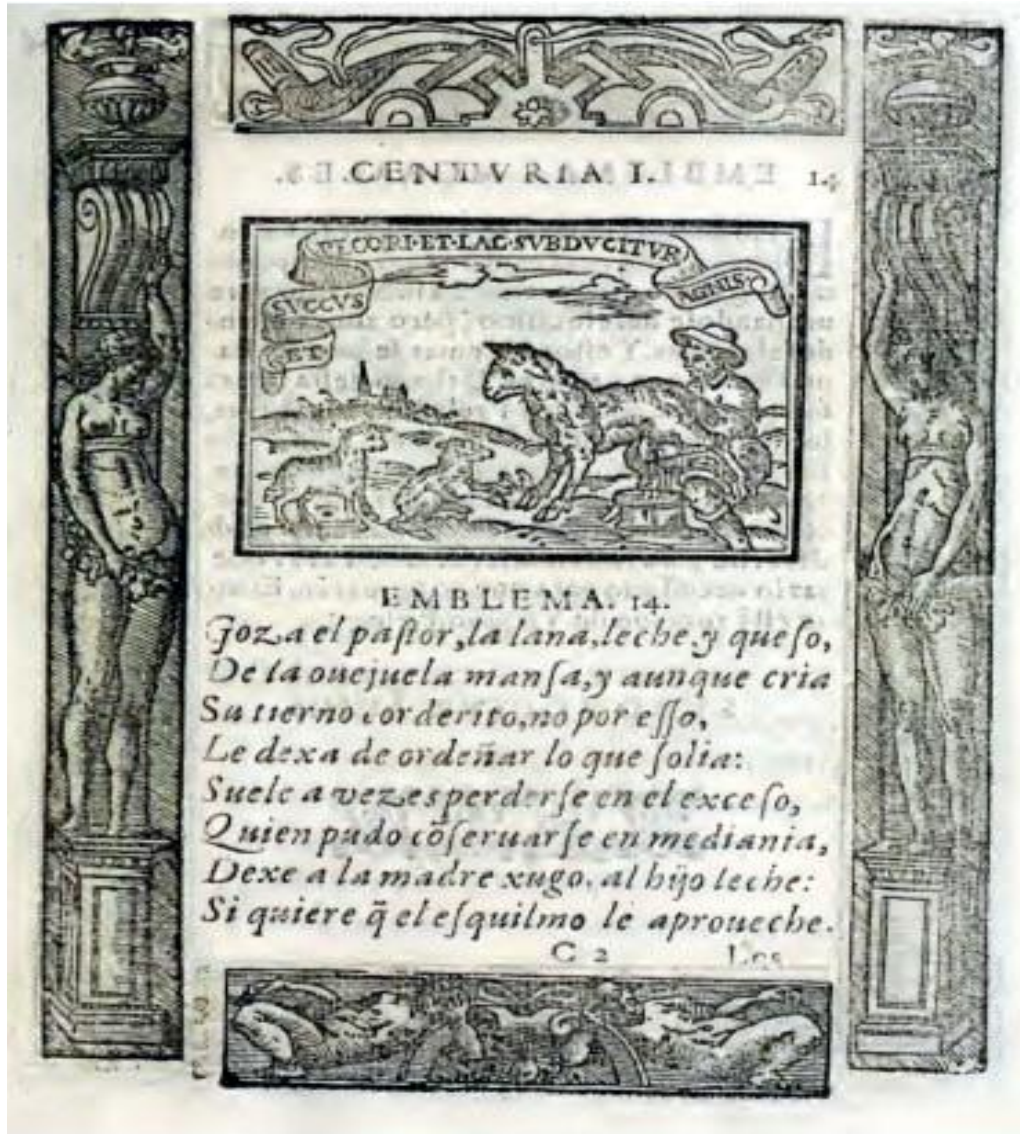 CENTVRIA I. 14
ET SVCCVS PECORI·ET·LAC·SVBDVCITVR AGNIS·
EMBLEMA. 14.
Goza el paſtor, la lana, leche, y queſo,
De la ouejuela manſa, y aunque cria
Su tierno corderito, no por eſſo,
Le dexa de ordeñar lo que ſolia:
Suele a vezes perderſe en el exceſo,
Quien pudo cõſeruarſe en mediania,
Dexe a la madre xugo, al hijo leche:
Si quiere q̃ el eſquilmo le aproueche.
C 2 Los